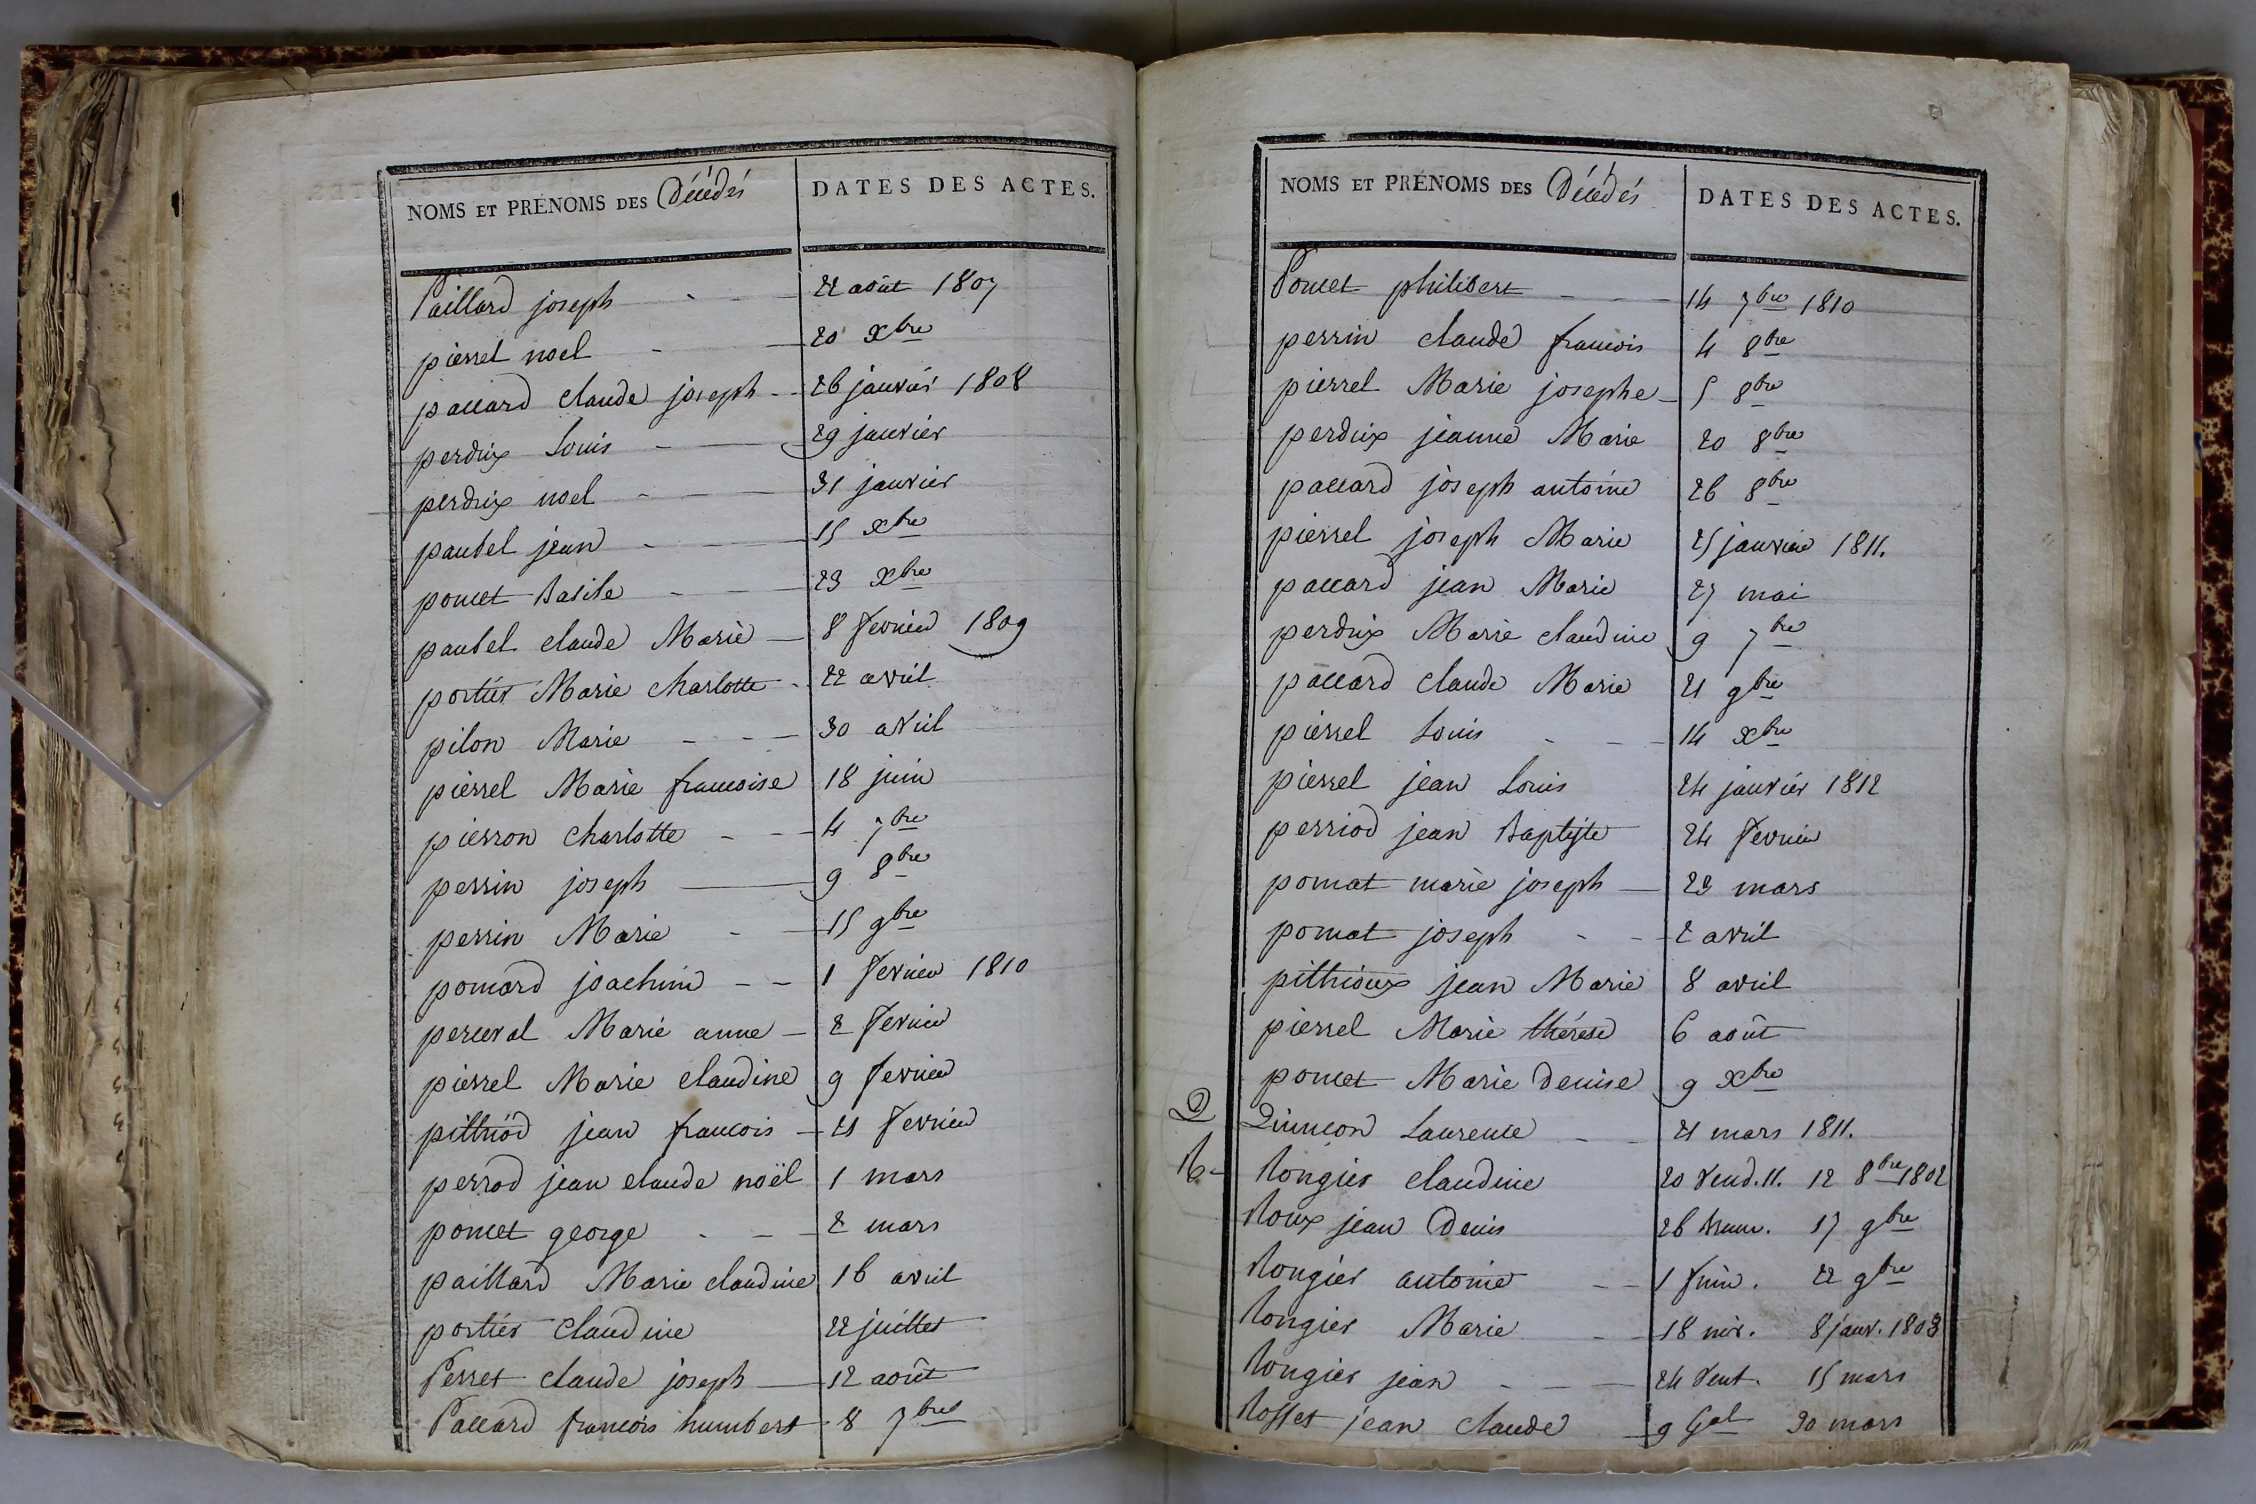 NOMS ET PRÉNOMS DES Décédés DATES DES ACTES.
Paillard joseph - - - 22 août 1807
pierrel noel - - 20 Xbre
paccard claude joseph - - 26 janvier 1808
perdrix Louis - — 29 janvier
perdrix noel - - - 31 janvier
paubel jean - - - 15 Xbre
poncet Basile - - - 23 Xbre
paubel claude Marie — 8 fevrier 1809
portier Marie charlotte - 22 avril
pilon Marie - - - 30 avril
pierrel Marie francoise 18 juin
pierron charlotte - - - 4 7bre
perrin joseph — 9 8bre
perrin Marie - - 15 9bre
pomard joachim - - 1 fevrier 1810
perceval Marie anne - 2 fevrier
pierrel Marie claudine 9 fevrier
pithiod jean francois - 21 fevrier
perrod jean claude noël 1 mars
poncet george - - - 2 mars
paillard Marie claudine 16 avril
portier claudine 22 juillet
Perret claude joseph — 12 août
Paccard francois humbert - 8 7bre
NOMS ET PRÉNOMS DES Décédés DATES DES ACTES.
Poncet philibert - - - 14 7bre 1810
perrin claude francois 4 8bre
pierrel Marie josephe - 5 8bre
perdrix jeanne Marie 20 8bre
paccard joseph antoine 26 8bre
pierrel joseph Marie 25 janvier 1811.
paccard jean Marie 27 mai
perdrix Marie claudine 9 7bre
paccard claude Marie 21 9bre
pierrel Louis - - - 14 Xbre
pierrel jean Louis 24 janvier 1812
perriod jean Baptiste 24 fevrier
pomat marie joseph — 23 mars
pomat joseph - - - 2 avril
pithioux jean Marie 8 avril
pierrel Marie thérese 6 août
poncet Marie Denise 9 Xbre
Q Quinson Laurence - - 21 mars 1811.
R- Rongier claudine 20 vend. 11. 12 8bre 1802
Roux jean Denis 26 brum. 17 9bre
Rongier antoine - - 1 frim. 22 9bre
Rongier Marie - - 18 niv. 8 janv. 1803
Rongier jean - - - 24 vent. 15 mars
Rosset jean claude - 9 Gal 30 mars